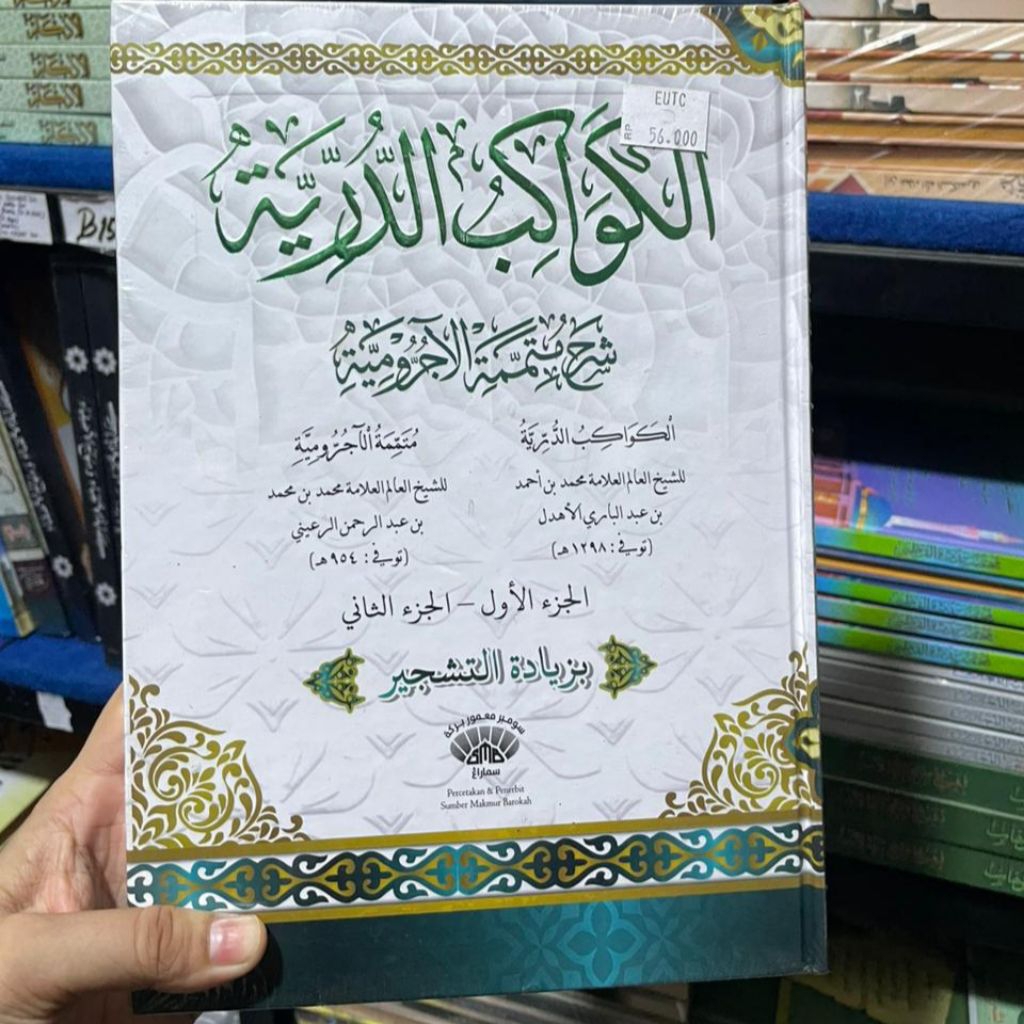 EUTC
RP 56.000
الكَوَاكِبُ الدُّرِّيَّةُ
شَرْحُ مُتَمِّمَةِ الْآجُرُّومِيَّةِ
الْكَوَاكِبُ الدُّرِّيَّةُ
للشيخ العالم العلامة محمد بن أحمد
بن عبد الباري الأهدل
(توفي: ١٢٩٨هـ)
مُتَمِّمَةُ الْآجُرُّومِيَّةِ
للشيخ العالم العلامة محمد بن محمد
بن عبد الرحمن الرعيني
(توفي: ٩٥٤هـ)
الجزء الأول - الجزء الثاني
بزيادة التشجير
سومبر معمور بركة
SMB
سماراغ
Percetakan & Penerbit
Sumber Makmur Barokah
B15